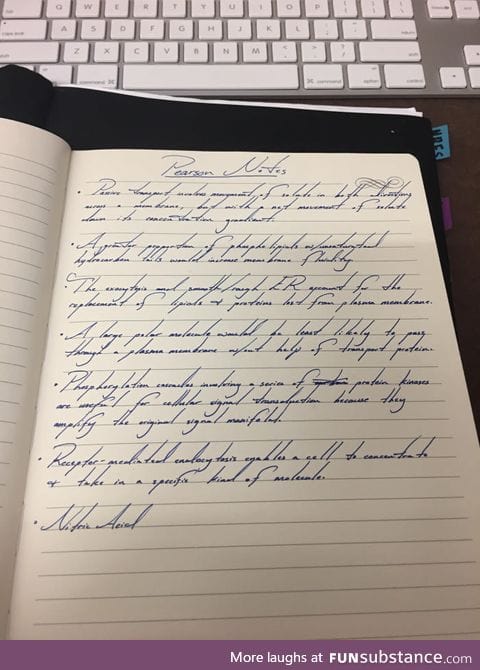 Pearson Notes
• Passive transport involves movement of solute in both directions
across a membrane, but with a net movement of solute
down its concentration gradient.
• A greater proportion of phospholipids w/unsaturated
hydrocarbon tails would increase membrane fluidity.
• The exocytosis and smooth/rough ER account for the
replacement of lipids & proteins lost from plasma membrane.
• A large polar molecule would be least likely to pass
through a plasma membrane w/out help of transport protein.
• Phosphorylation cascades involving a series of protein kinases
are useful for cellular signal transduction because they
amplify the original signal manifold.
• Receptor-mediated endocytosis enables a cell to concentrate
& take in a specific kind of molecule.
• Nitric Acid
More laughs at FUNsubstance.com